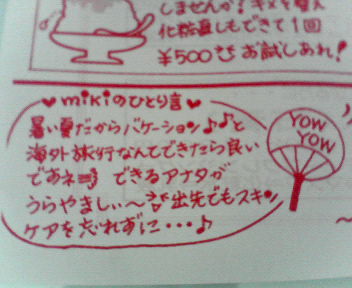 しませんか？キメを整え
化粧直しもできて1回
¥500 お試しあれ！
♥mikiのひとり言♥
暑い夏だからバケーション♪♪と
海外旅行なんてできたら良い
ですネ できるアナタが
うらやましい～ 出先でもスキン
ケアを忘れずに・・・♪
YOW
YOW
～